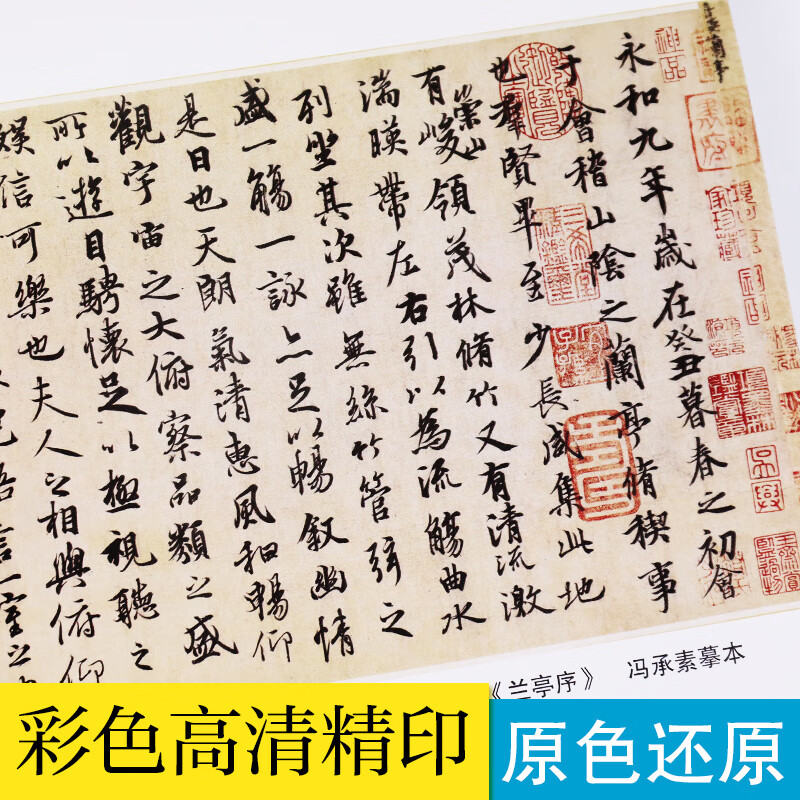 永和九年歲在癸丑暮春之初會
于會稽山陰之蘭亭脩稧事
也羣賢畢至少長咸集此地
有崇山峻領茂林脩竹又有清流激
湍暎帶左右引以為流觴曲水
列坐其次雖無絲竹管弦之
盛一觴一詠亦足以暢叙幽情
是日也天朗氣清惠風和暢仰
觀宇宙之大俯察品類之盛
所以遊目騁懷足以極視聽之
娛信可樂也夫人之相與俯仰
悟言一室之
《兰亭序》 冯承素摹本
彩色高清精印
原色还原